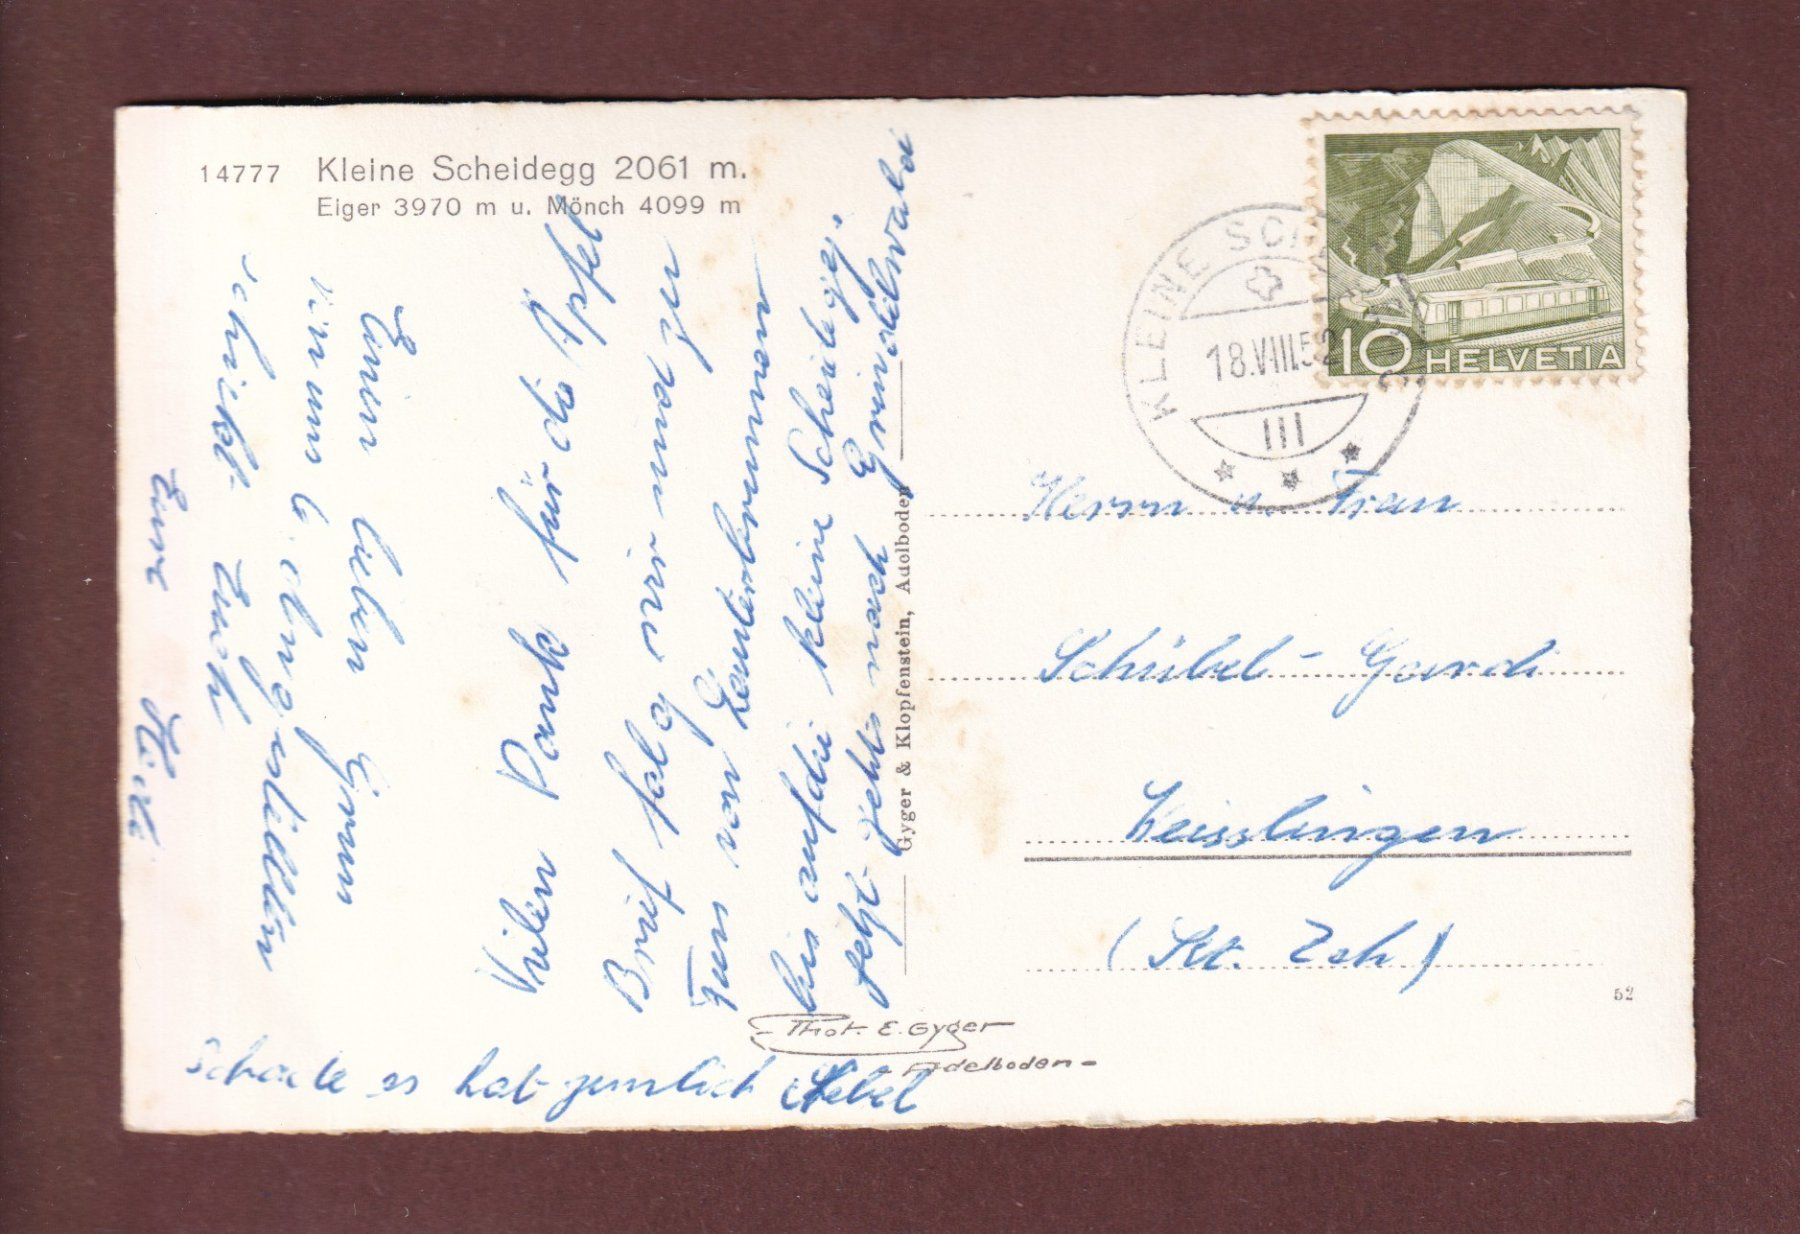 14777 Kleine Scheidegg 2061 m.
Eiger 3970 m u. Mönch 4099 m
Vielen Dank für die Äpfel
Brief folg wir sind zu
Fuss von Lauterbrunnen
bis auf die kleine Scheidegg.
jetzt geht's nach Grindelwald
Einen lieben Gruss
schickt Euch
Eure Heidi
Schade es hat ziemlich Nebel
Gyger & Klopfenstein, Adelboden
Phot. E. Gyger
Adelboden
KLEINE SCHEIDEGG
18.VIII.52
III
10 HELVETIA
Herrn u. Frau
Schübel - Gardi
Weisslingen
(Kt. Zch)
52